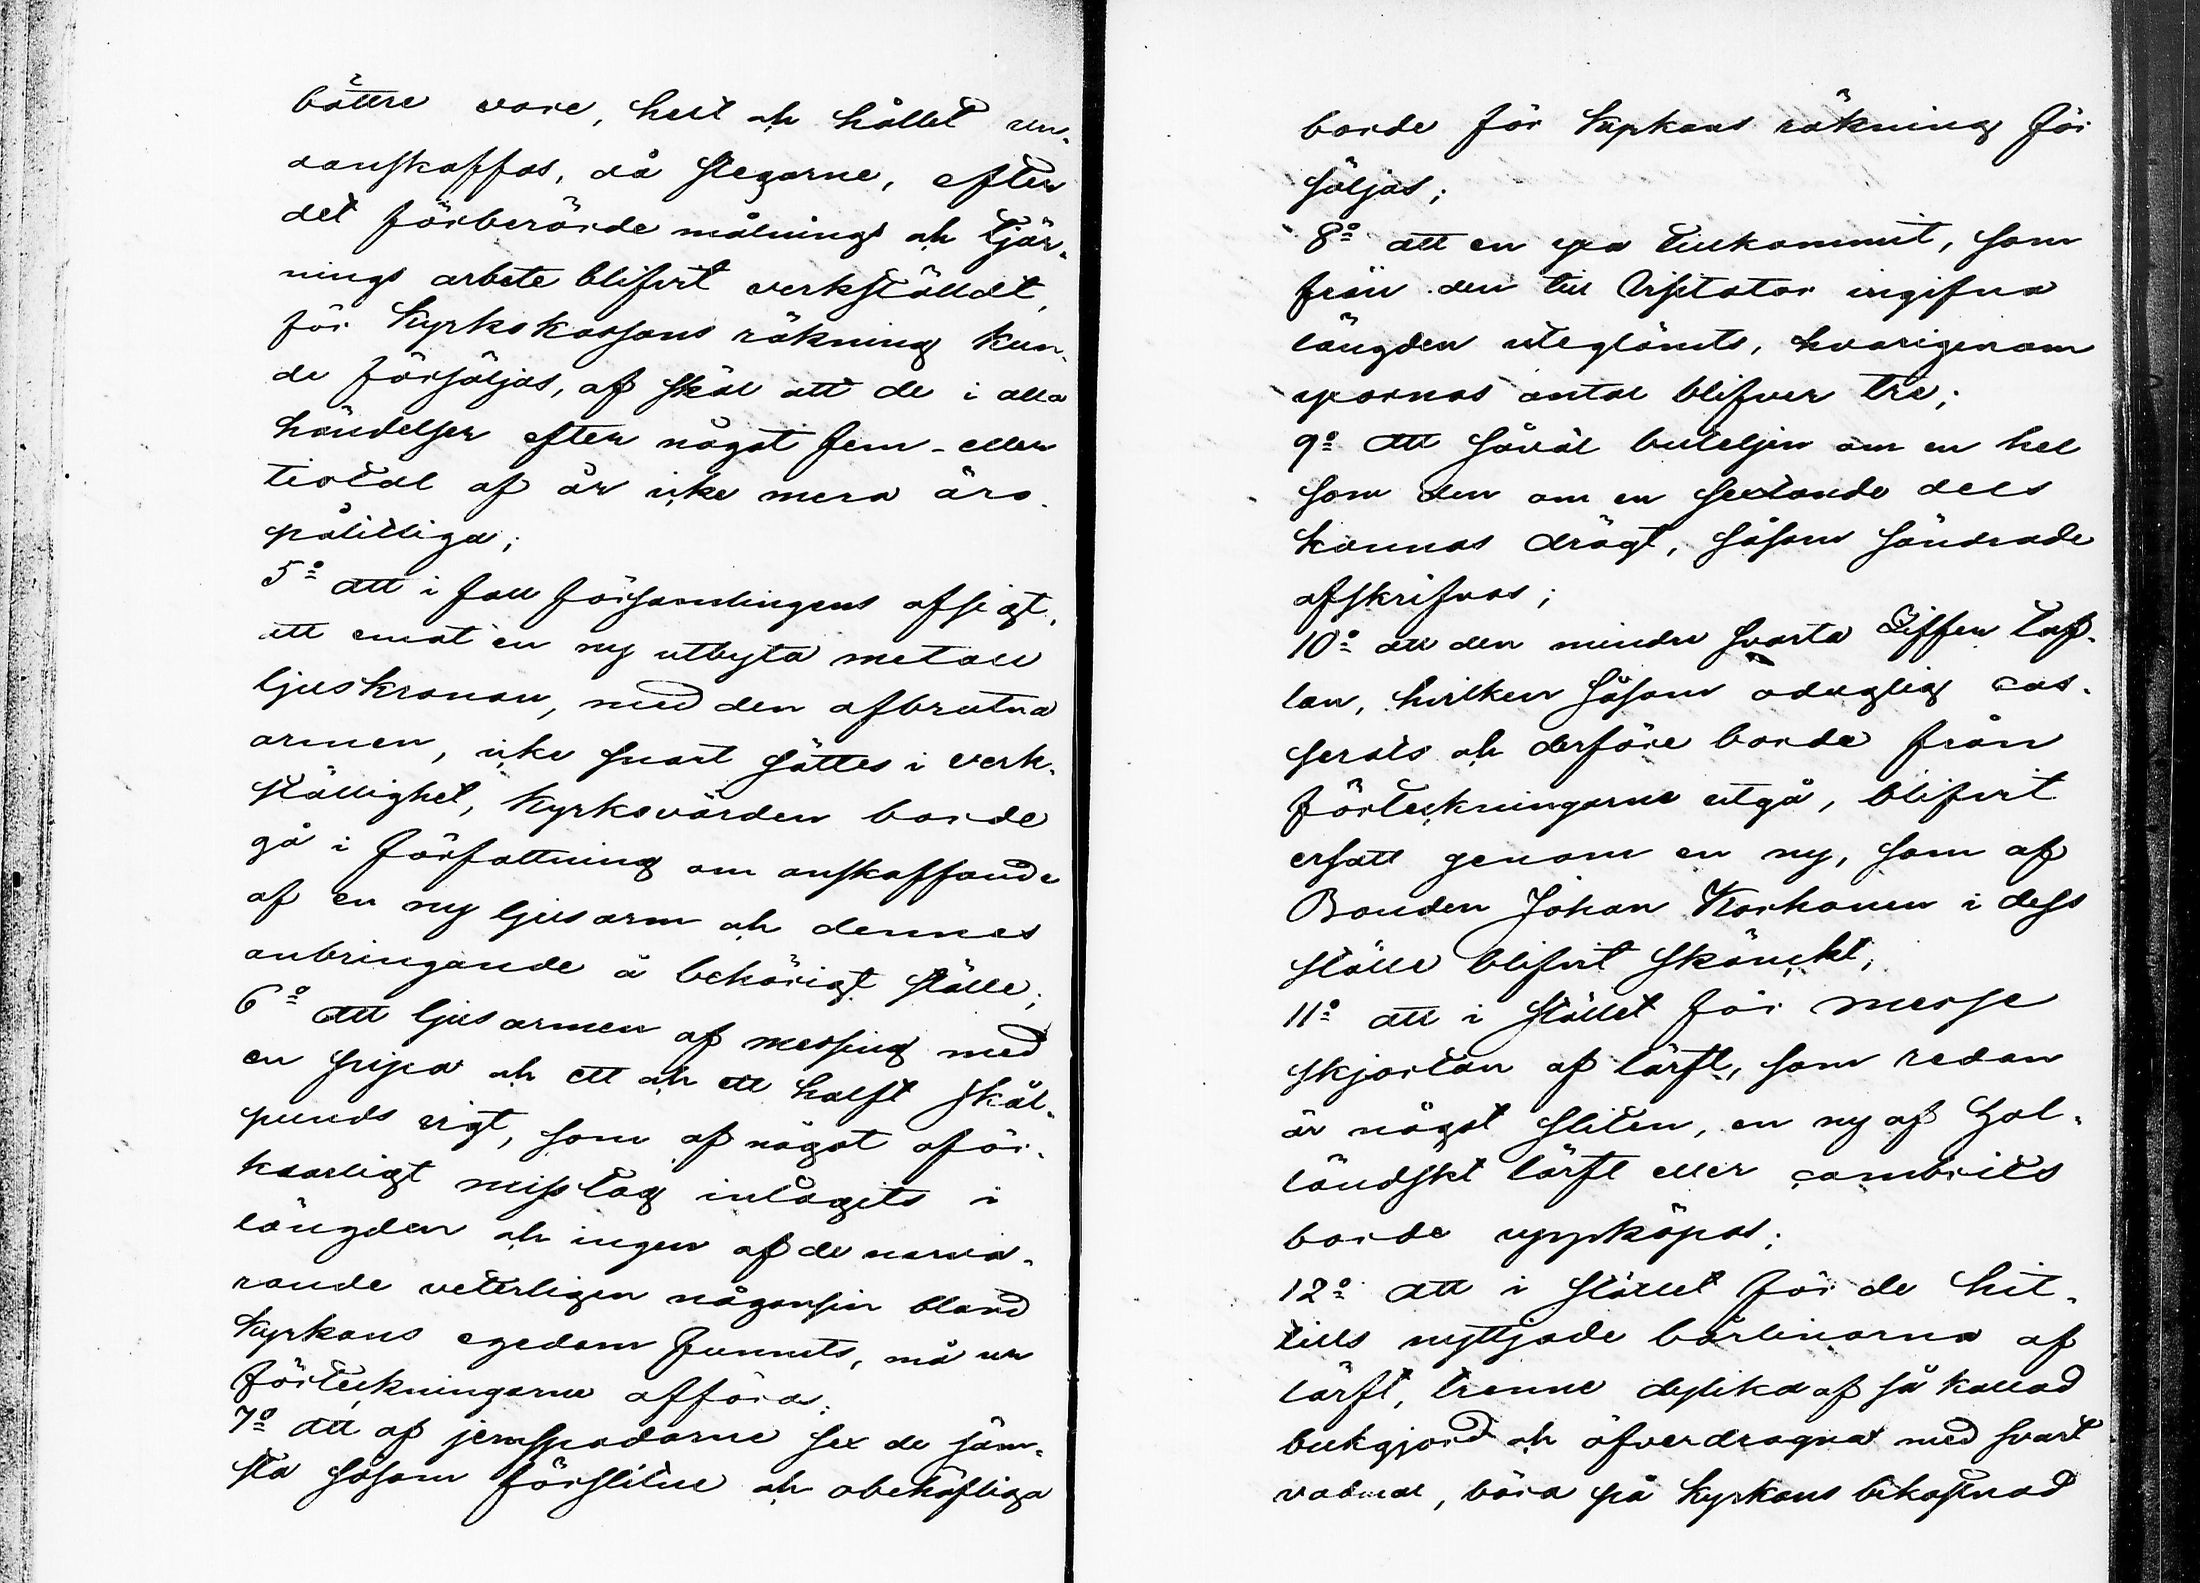 bättre vore, helt och hållet un-
danskaffas, då stegarne, efter
det förberörde målnings och tjär-
nings arbete blifvit verkställdt,
för Kyrkokassans räkning kun-
de försäljas, af skäl att de i alla
händelser efter något fem- eller
tiotal af år icke mera äro
pålitliga;
5o att i fall församlingens afsigt,
att emot en ny utbyta metall
ljuskronan, med den afbrutna
armen, icke snart sättes i verk-
ställighet, Kyrkovärden borde
gå i författning om anskaffande
af en ny ljusarm och dennes
anbringande å behörigt ställe;
6o att ljusarmen af messing med
en pipa och ett och ett halft skål-
punds vigt, som af något oför-
klarligt misstag intagits i
längden och ingen af de närva-
rande veterligen någonsin bland
Kyrkans egedom funnits, må ur
förteckningarne afföras;
7o att af jernspadarne sex de säm-
sta såsom förslitne och obehöfliga
borde för Kyrkans räkning för
säljas;
8o att en ypa tillkommit, som
från den till Visitator ingifna
längden uteglömts, hvarigenom
ypornas antal blifver tre;
9o att såväl buteljen om en hel
som den om en sextonde dels
kannas drägt, såsom söndrade
afskrifvas;
10o att den mindre svarta Ziffer taf-
lan, hvilken såsom oduglig cas-
serats och derföre borde från
förteckningarne utgå, blifvit
ersatt genom en ny, som af
Bonden Johan Korhonen i dess
ställe blifvit skänckt;
11o att i stället för messe
skjortan af lärft, som redan
är något sliten, en ny af Hol-
ländskt lärft eller cambrits
borde uppköpas;
12o att i stället för de hit-
tills nyttjade bårlinorna af
lärft, trenne dylika af så kallad
bukgjord och öfverdragna med svart
vadmal, böra på Kyrkans bekostnad